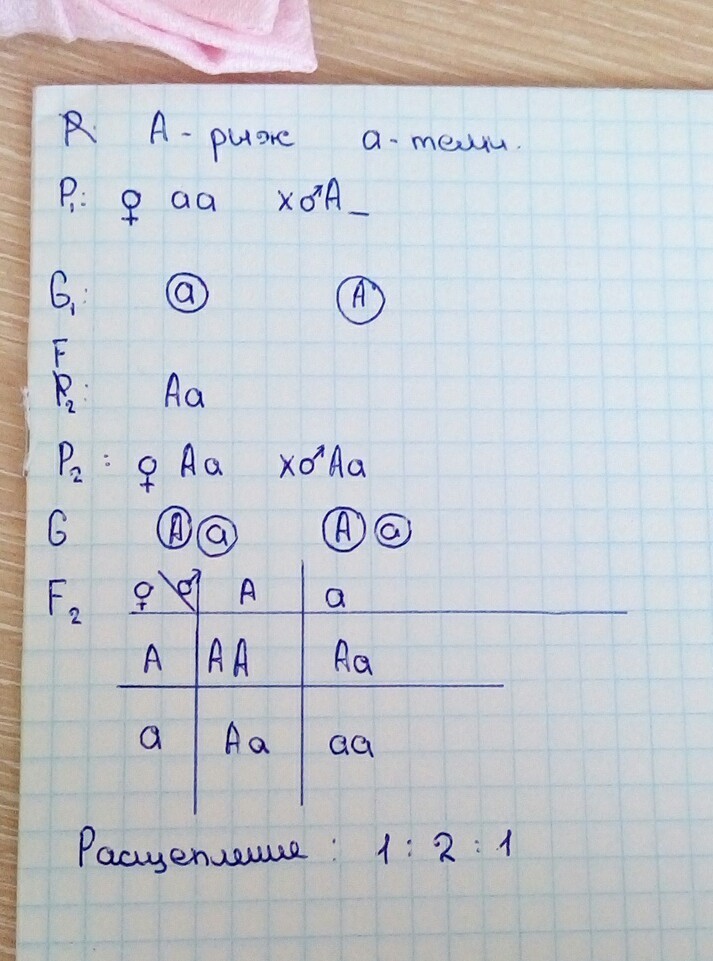 P: A - рыж a - темн.
P₁: ♀ aa x ♂ A _
G₁: a A
F
P₂: Aa
P₂: ♀ Aa x ♂ Aa
G A a A a
F₂ ♀ \ ♂ A a
A AA Aa
a Aa aa
Расщепление : 1 : 2 : 1